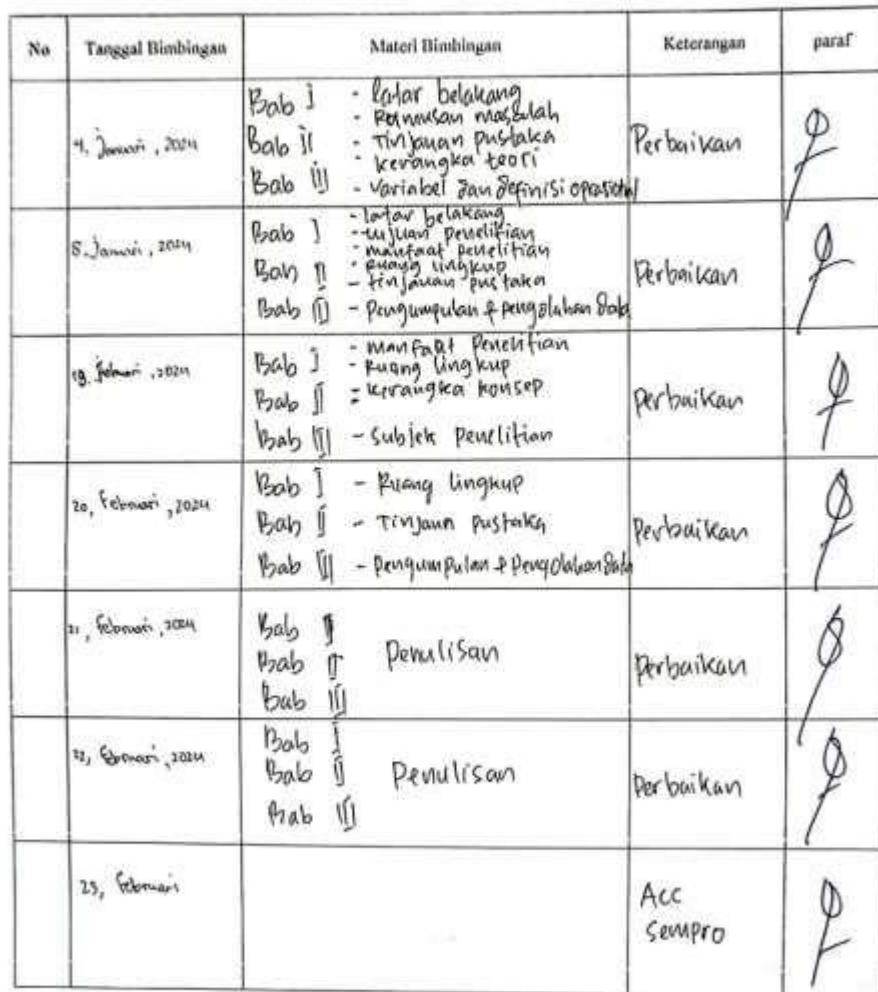 No Tanggal Bimbingan Materi Bimbingan Keterangan paraf
4, Januari, 2024
Bab I - latar belakang
- Rumusan masalah
Bab II - Tinjauan pustaka
- kerangka teori
Bab III - variabel dan definisi oprasional
Perbaikan
8, Januari, 2024
Bab I - latar belakang
- tujuan penelitian
- manfaat penelitian
Bab II - Ruang lingkup
- tinjauan pustaka
Bab III - Pengumpulan & pengolahan data
Perbaikan
19, 2024
Bab I - manfaat penelitian
- Ruang lingkup
Bab II - kerangka konsep
Bab III - Subjek penelitian
Perbaikan
20, Februari, 2024
Bab I - Ruang lingkup
Bab II - Tinjaun pustaka
Bab III - Pengumpulan & Pengolahan data
Perbaikan
21, Februari, 2024
Bab
Bab II Penulisan
Bab III
Perbaikan
22, Februari, 2024
Bab I
Bab II Penulisan
Bab III
Perbaikan
23, Februari
Acc
Sempro